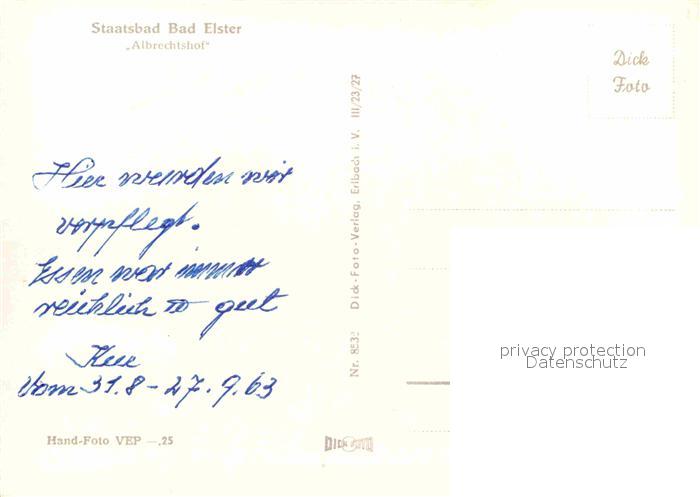 Staatsbad Bad Elster
„Albrechtshof“
Dick
Foto
Hier wurden wir
verpflegt.
Essen war immer
reichlich u gut
Kur
Vom 31.8 – 27.9.63
Hand-Foto VEP —,25
Nr. 853 Dick-Foto-Verlag, Erlbach i. V. III/23/27
DICK FOTO
privacy protection
Datenschutz